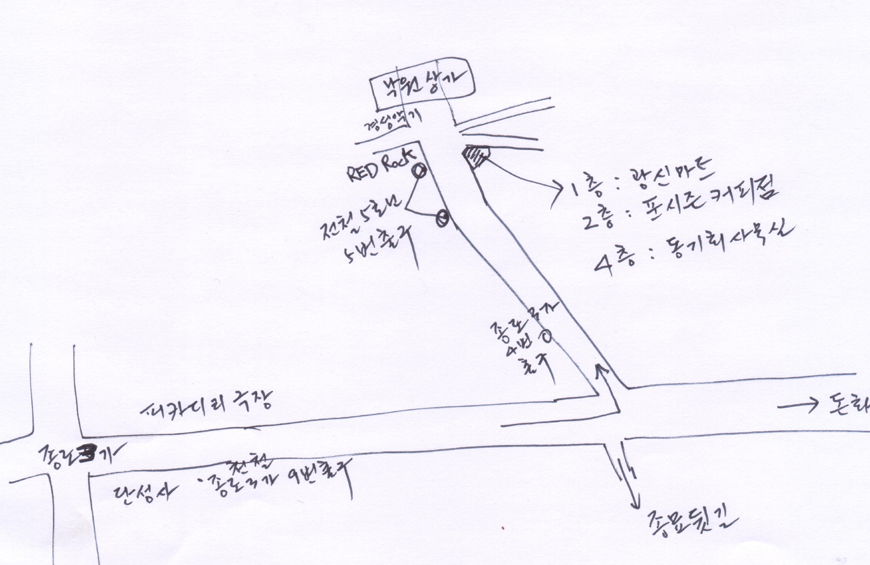 낙원상가
경성악기
RED Rock
전철 5호선
5번출구
1층 : 광신마트
2층 : 포시즌 커피점
4층 : 동기회사무실
종로3가
4번
출구
피카디리극장
돈화
종로3가
전철
단성사 종로3가 9번출구
종묘뒷길